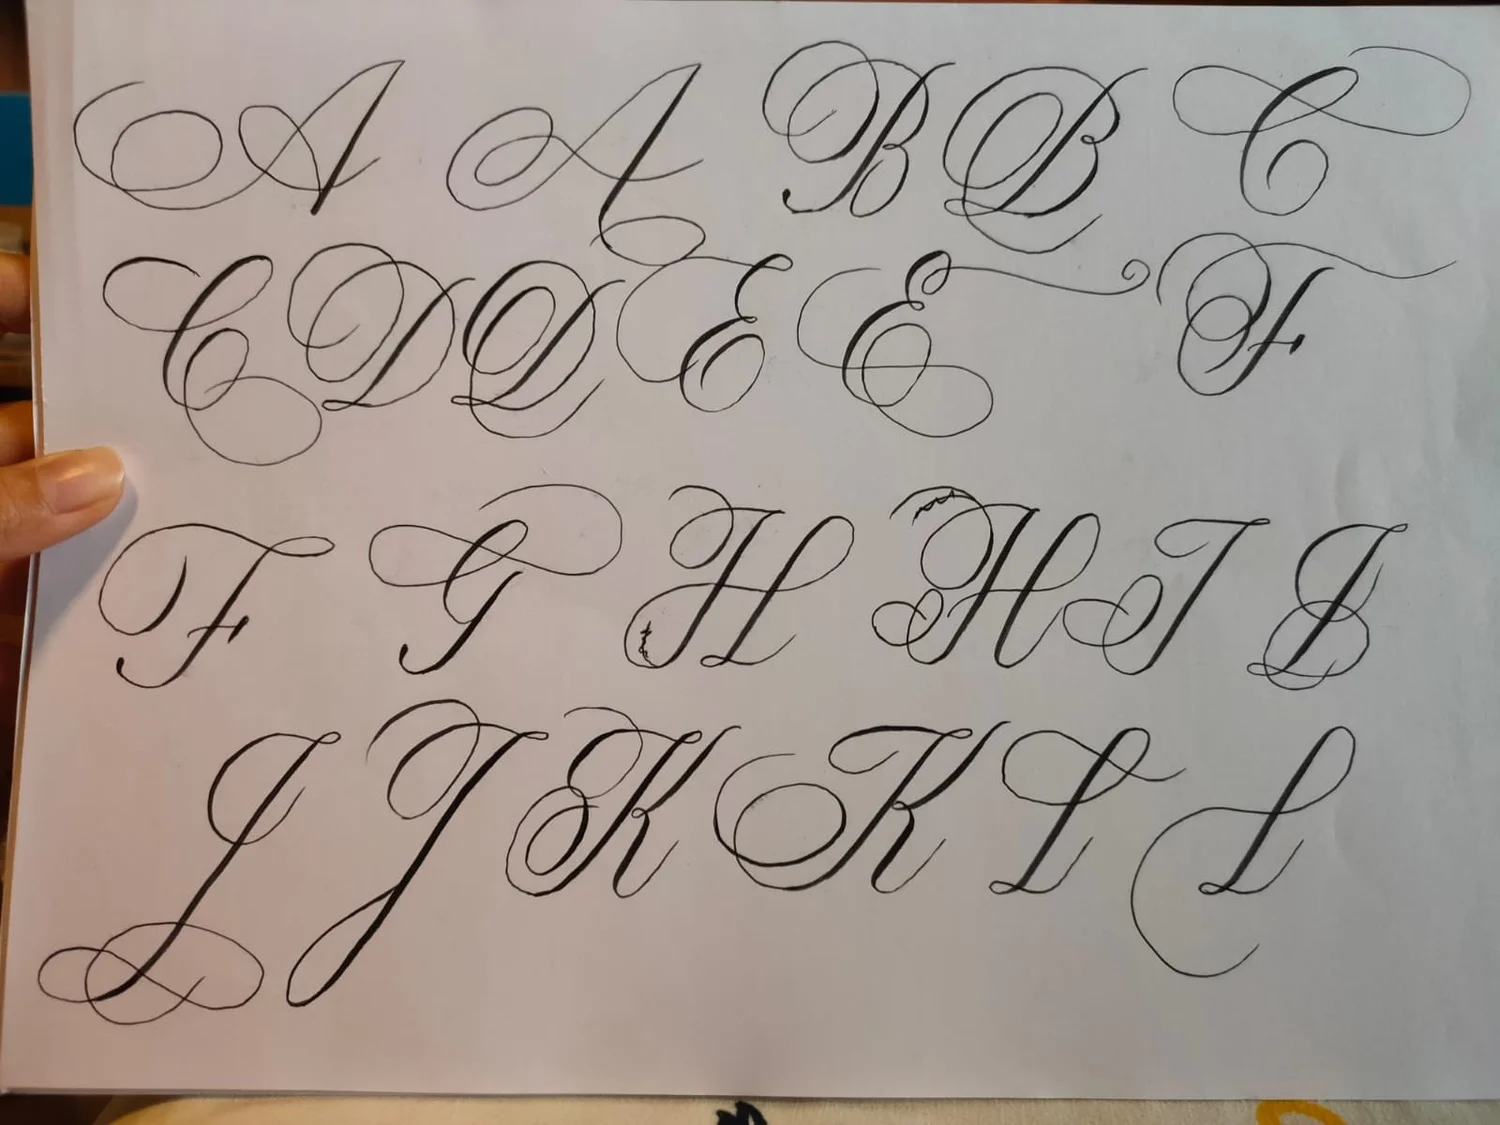 A A B B C
C D D E E F
F G H H I I
J J K K L L